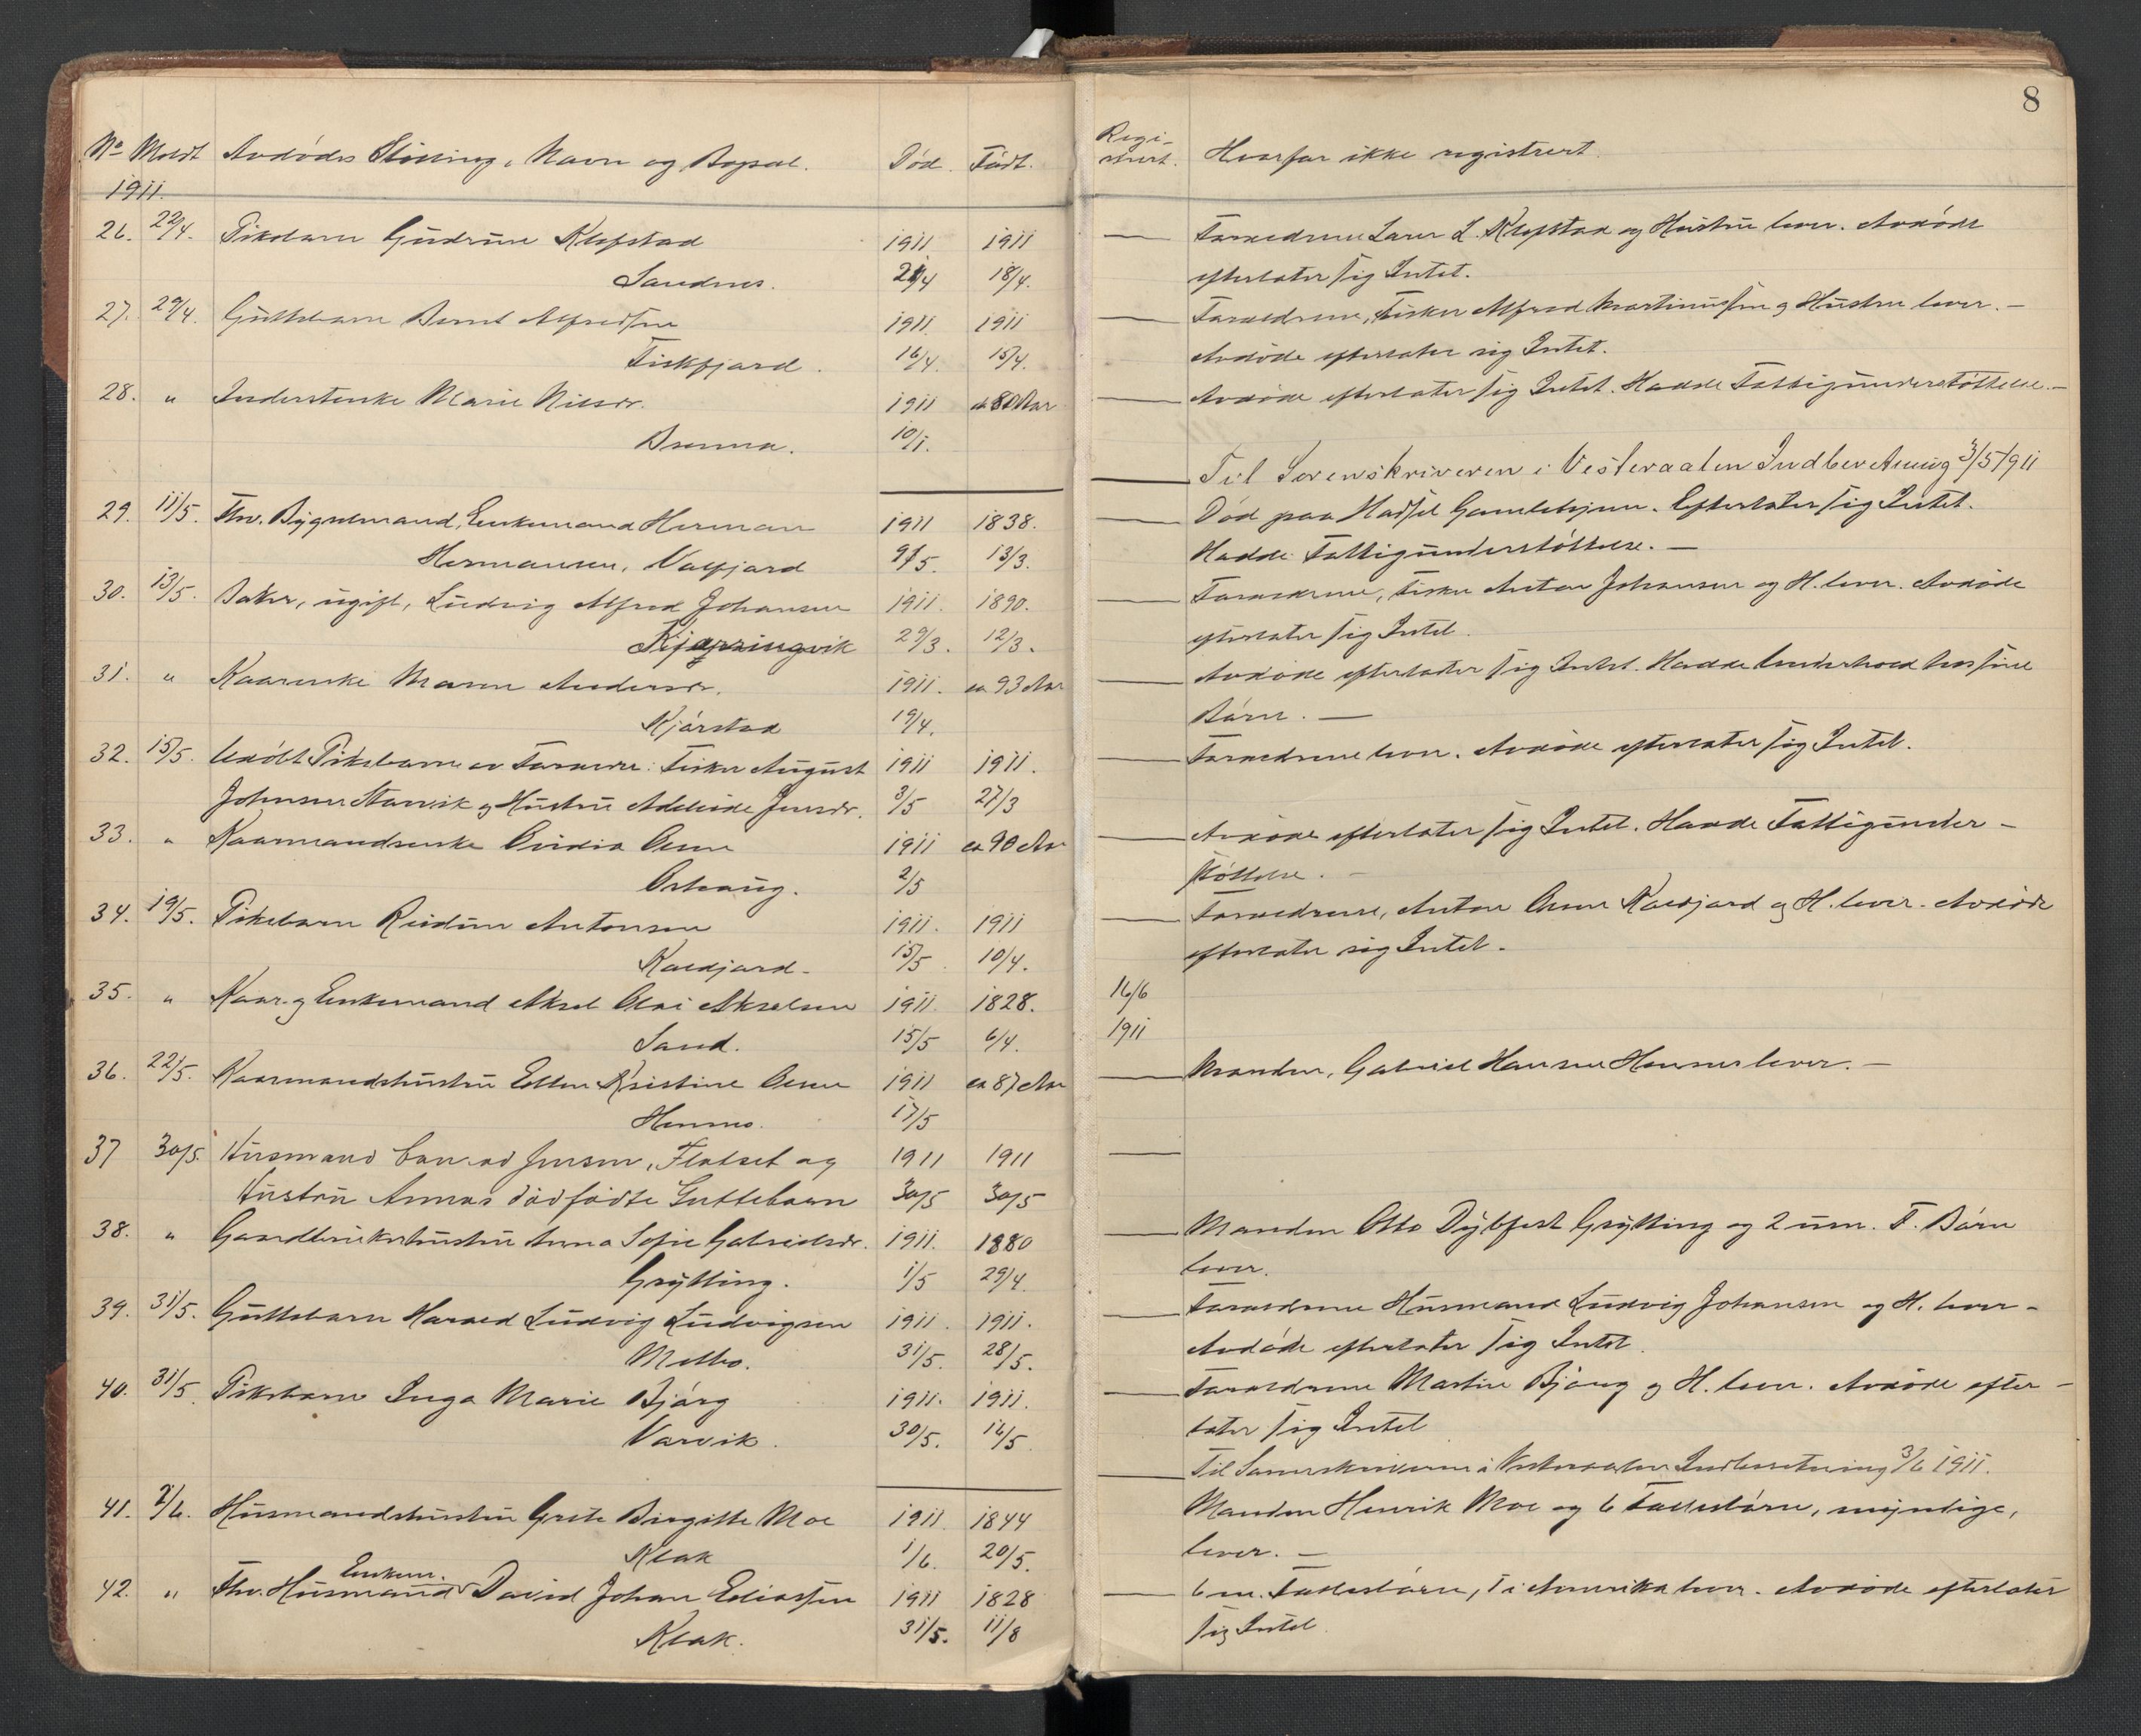 8
No Meldt Avdödes Stilling, Navn og Bopæl. Död. Födt. Regi-
strert. Hvorfor ikke registrert
1911.
26. 22/4. Pikebarn Gudrun Klofstad 1911 1911 — Forældrene Lærer L. Klofstad og Hustru lever. Avdöde
Sandnes. 21/4 18/4. efterlater sig Intet.
27. 29/4. Guttebarn Bernt Alfredsen 1911 1911 — Forældrene, Fisker Alfred Martinussen og Hustru lever. —
Fiskfjord. 16/4. 15/4. Avdöde efterlater sig Intet.
28. " Inderstenke Marie Nilsdr. 1911 ca 80 Aar — Avdöde efterlater sig Intet. Hadde Fattigunderstöttelse. —
10/1.
— Til Sorenskriveren i Vesteraalen Indberetning 3/5 1911
29. 11/5. Fhv. Bygselmand, Enkemand Herman 1911 1838. — Död paa Hadsel Gamlehjem. Efterlater sig Intet.
Hermansen, Valfjord 9/5. 13/3. Hadde Fattigunderstöttelse. —
30. 13/5. Baker, ugift, Ludvig Alfred Johansen 1911. 1890. — Forældrene, Fisker Anton Johansen og H. lever. Avdöde
Kjerringvik 29/3. 12/3. efterlater sig Intet.
31. " Kaarenke Maren Andersdr. 1911. ca 93 Aar — Avdöde efterlater sig Intet. Hadde Underhold hos sine
Kjörstad 19/4. Börn. —
32. 15/5. Udöbt Pikebarn av Forældre: Fisker August 1911 1911. — Forældrene lever. Avdöde efterlater sig Intet.
Johnsen og Hustru Adelaide Jensdr. 3/5 27/3
33. " Kaarmandsenke Ovidia Olsen 1911 ca 90 Aar — Avdöde efterlater sig Intet. Hadde Fattigunder-
Oshaug. 2/5 stöttelse. —
34. 19/5. Pikebarn Reidun Antonsen 1911. 1911 — Forældrene, Anton Olsen Kaldjord og H. lever. Avdöde
Kaldjord. 15/5. 10/4. efterlater sig Intet.
35. " Kaar- og Enkemand Aksel Olai Akselsen 1911. 1828. 16/6
Sand. 15/5 6/4. 1911
36. 22/5. Kaarmandshustru Ellen Kristine Olsen 1911 ca 87 Aar — Manden, Gabriel Hansen Hennes lever. —
Hennes. 17/5
37 30/5. Husmand Conrad Jensen, Flatset og 1911 1911 —
Hustru Annas dödfödte Guttebarn 30/5 30/5
38. " Gaardbrukerhustru Anna Sofie Gabrielsdr. 1911. 1880 — Manden Otto Dybfest Grytting og 2 um. F. Börn
Grytting. 1/5 29/4. lever.
39. 31/5. Guttebarn Harald Ludvig Ludvigsen 1911. 1911. — Forældrene Husmand Ludvig Johansen og H. lever -
Melbo. 31/5. 28/5. Avdöde efterlater sig Intet.
40. 31/5. Pikebarn Inga Marie Bjórg 1911. 1911. — Forældrene Martin Bjórg og H. lever. Avdöde efter-
Varvik. 30/5. 16/5. later sig Intet
— Til Sorenskriveren i Vesteraalen Indberetning 3/6 1911.
41. 2/6. Husmandshustru Grete Birgitte Moe 1911 1844 Manden Henrik Moe og 6 Fællesbörn, myndige,
Klak 1/6. 20/5. lever. —
42. " Fhv. Husmand Enkem. David Johan Eliassen 1911 1828 — 6 m. Fællesbörn, 1 i Amerika lever. Avdöde efterlater
Klak. 31/5. 11/8 sig Intet.